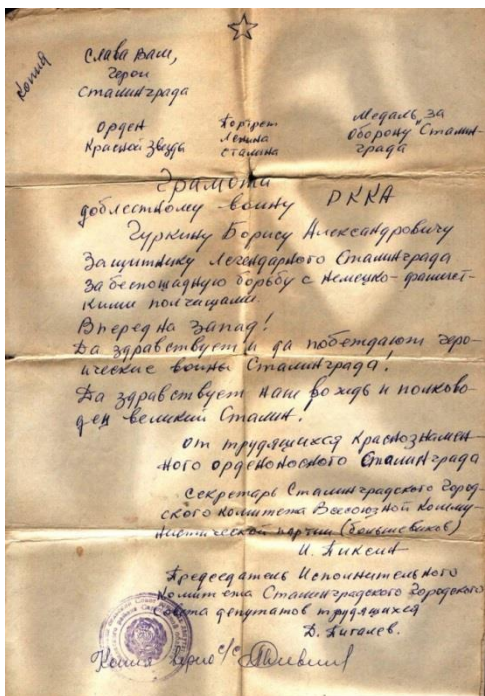 Копия
Слава Вам,
герои
Сталинграда
Орден
Красной Звезды
Портрет
Ленина
Сталина
Медаль "за
оборону Сталин-
града
Грамота
доблестному воину РККА
Гуркину Борису Александровичу
Защитнику Легендарного Сталинграда
за беспощадную борьбу с немецко-фашист-
скими полчищами.
Вперед на Запад!
Да здравствует и да побеждают геро-
ические воины Сталинграда!
Да здравствует наш вождь и полково-
дец великий Сталин!
от трудящихся Краснознамен-
ного орденоносного Сталинграда
Секретарь Сталинградского Город-
ского Комитета Всесоюзной Комму-
нистической партии (большевиков)
И. Пиксин
Председатель Исполнительного
Комитета Сталинградского Городского
Совета депутатов трудящихся
Д. Пигалев.
Копия верна с/с